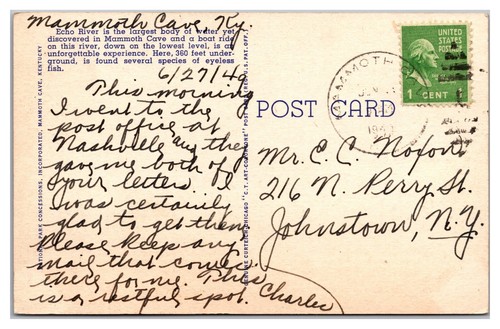 Mammoth Cave, Ky.
Echo River is the largest body of water yet
discovered in Mammoth Cave and a boat ride
on this river, down on the lowest level, is an
unforgettable experience. Here, 360 feet under-
ground, is found several species of eyeless
fish.
6/27/40
This morning
I went to the
post office at
Nashville any they
gave me both of
your letters. I
was certainly
glad to get them
Please keep any
mail that comes
there for me. This
is a restful spot. Charles
NATIONAL PARK CONCESSIONS, INCORPORATED, MAMMOTH CAVE, KENTUCKY
GENUINE CURTEICH-CHICAGO "C.T. ART-COLORTONE" POST CARD (REG. U.S. PAT. OFF.)
POST CARD
MAMMOTH
UNITED
STATES
POSTAGE
1 CENT
Mr. C. C. Noxon
216 N. Perry St.
Johnstown, N.Y.